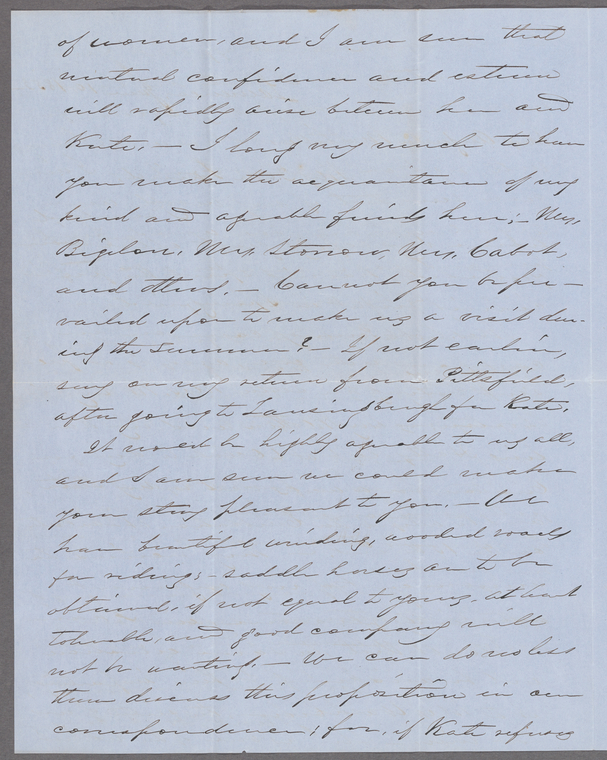 of women, and I am sure that
mutual confidence and esteem
will rapidly arise between her and
Kate. — I long very much to have
you make the acquaintance of my
kind and agreeable friends here; — Mrs.
Bigelow, Mrs. Storrow, Mrs. Cabot,
and others. — Cannot you be pre-
vailed upon to make us a visit dur-
ing the Summer? — If not earlier,
say on my return from Pittsfield,
after going to Lansingburgh for Kate.
It would be highly agreeable to us all,
and I am sure we could make
your stay pleasant to you. — We
have beautiful winding, wooded roads
for riding; — saddle horses are to be
obtained, if not equal to yours, at least
tolerable, and good company will
not be wanting. — We can do no less
than discuss this proposition in our
correspondence; for, if Kate refuses